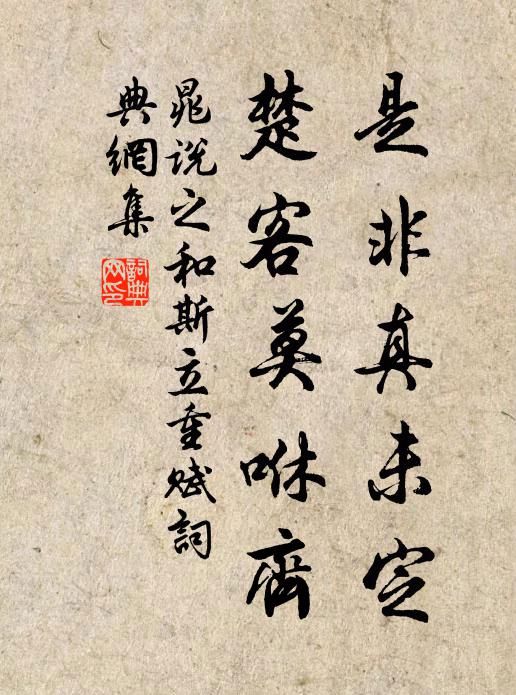 是非真未定
楚客莫咻齊
晁說之和斯立重賦詞
典網集
詞典網印